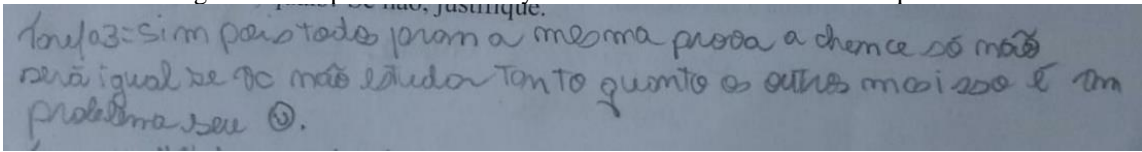 não, justifique.
Taref a3=Sim pois todos foram a mesma prova a chance só não
será igual se vc não estudar Tanto quanto os outros mais isso é um
problema seu